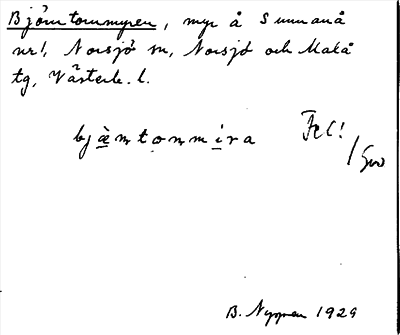 Björntommyren, myr å Sunnanå
nr 1, Norsjö sn, Norsjö och Malå
tg, Västerb. l.
bjæ̀ntommira Fel!
B. Nygren 1929